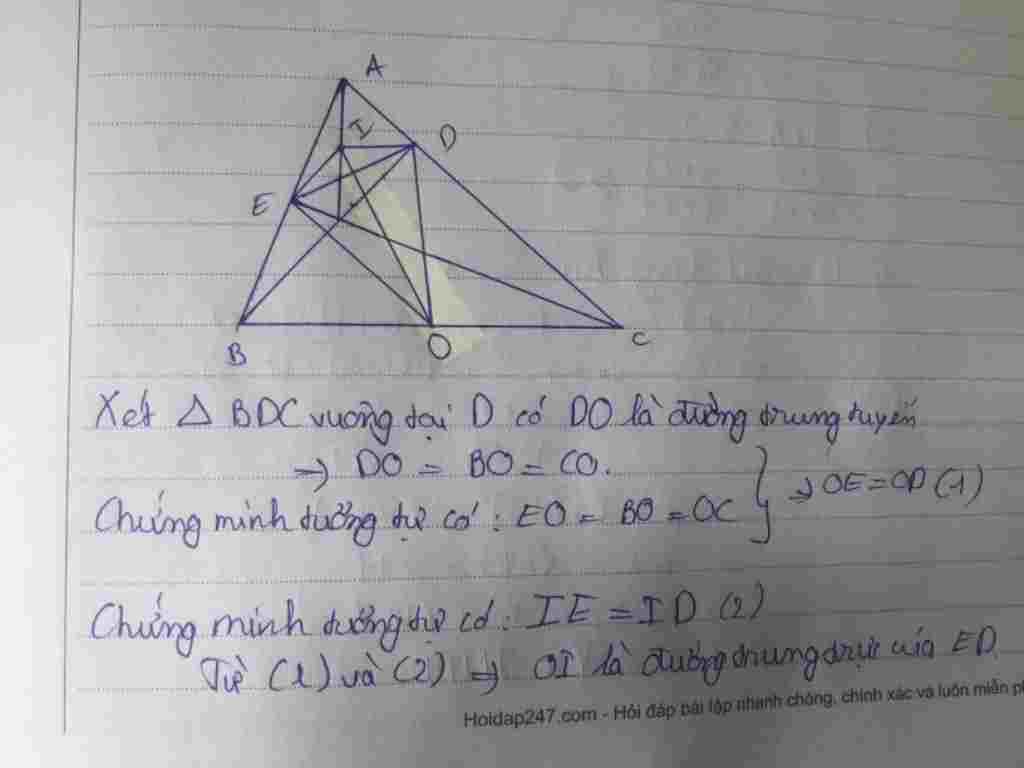 A
I
D
E
B
O
C
Xét △ BDC vuông tại D có DO là đường trung tuyến
→ DO = BO = CO.
⇒ OE = OD (1)
Chứng minh tương tự có : EO = BO = OC
Chứng minh tương tự có : IE = ID (2)
Từ (1) và (2) ⇒ OI là đường trung trực của ED
Hoidap247.com - Hỏi đáp bài tập nhanh chóng, chính xác và luôn miễn ph